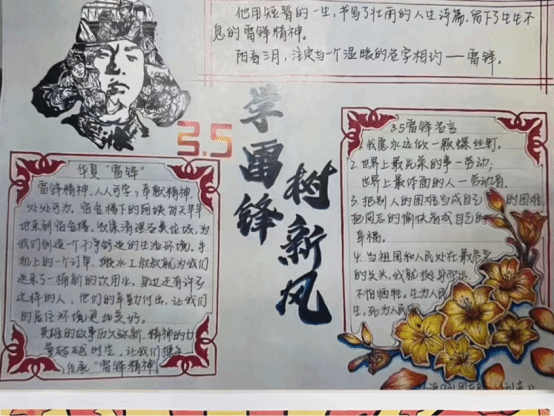 他用短暂的一生,书写了壮丽的人生诗篇,留下了生生不
息的雷锋精神。
阳春三月,注定与一个温暖的名字相约——雷锋。
3.5
学雷锋
树新风
华夏"雷锋"
雷锋精神,人人可学;奉献精神,
处处可为。宿舍楼下的阿姨每天早早
地来到宿舍楼,收集清理各类垃圾,为
我们创造一个干净舒适的生活环境。手
机上的一个订单,搬水工叔叔就为我们
送来了一桶新的饮用水。身边还有许多
这样的人,他们的辛勤付出,让我们
的居住环境更加美好。
英雄的故事历久弥新,精神的力
量砥砺时空,让我们携手
传承"雷锋精神"。
3.5雷锋名言
我愿永远做一颗螺丝钉。
2.世界上最光荣的事—劳动;
世界上最体面的人—劳动者。
3.把别人的困难当成自己的困难,
把同志的愉快看成自己的
幸福。
4.当祖国和人民处在最危急
的关头,我就挺身而出,
不怕牺牲。生为人民
生,死为人民